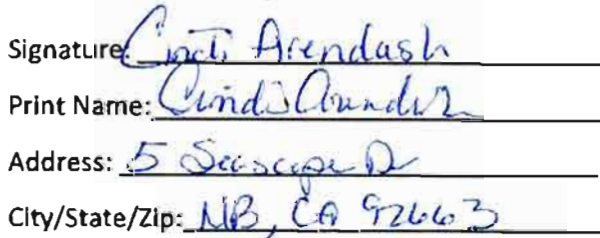 Signature: Cindi Arendash
Print Name: Cindi Arendash
Address: 5 Seascape Dr
City/State/Zip: NB, CA 92663